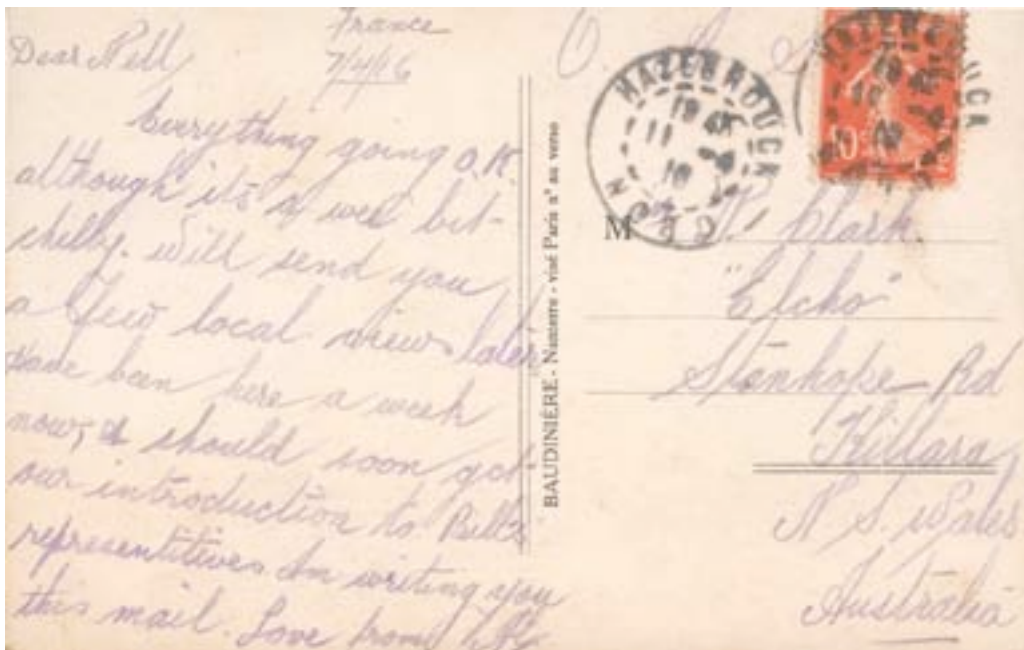 France
7/4/16
Dear Nell
Everything going O.K.
although it's a wee bit
chilly. Will send you
a few local views later
Have been here a week
now, & should soon get
our introduction to Bill's
representitives Am writing you
this mail. Love from
BAUDINIÈRE - Nanterre - visé Paris n° au verso
HAZEBROUCK
NORD
M Clark
"Elcho"
Stanhope Rd
Killara
N. S. Wales
Australia